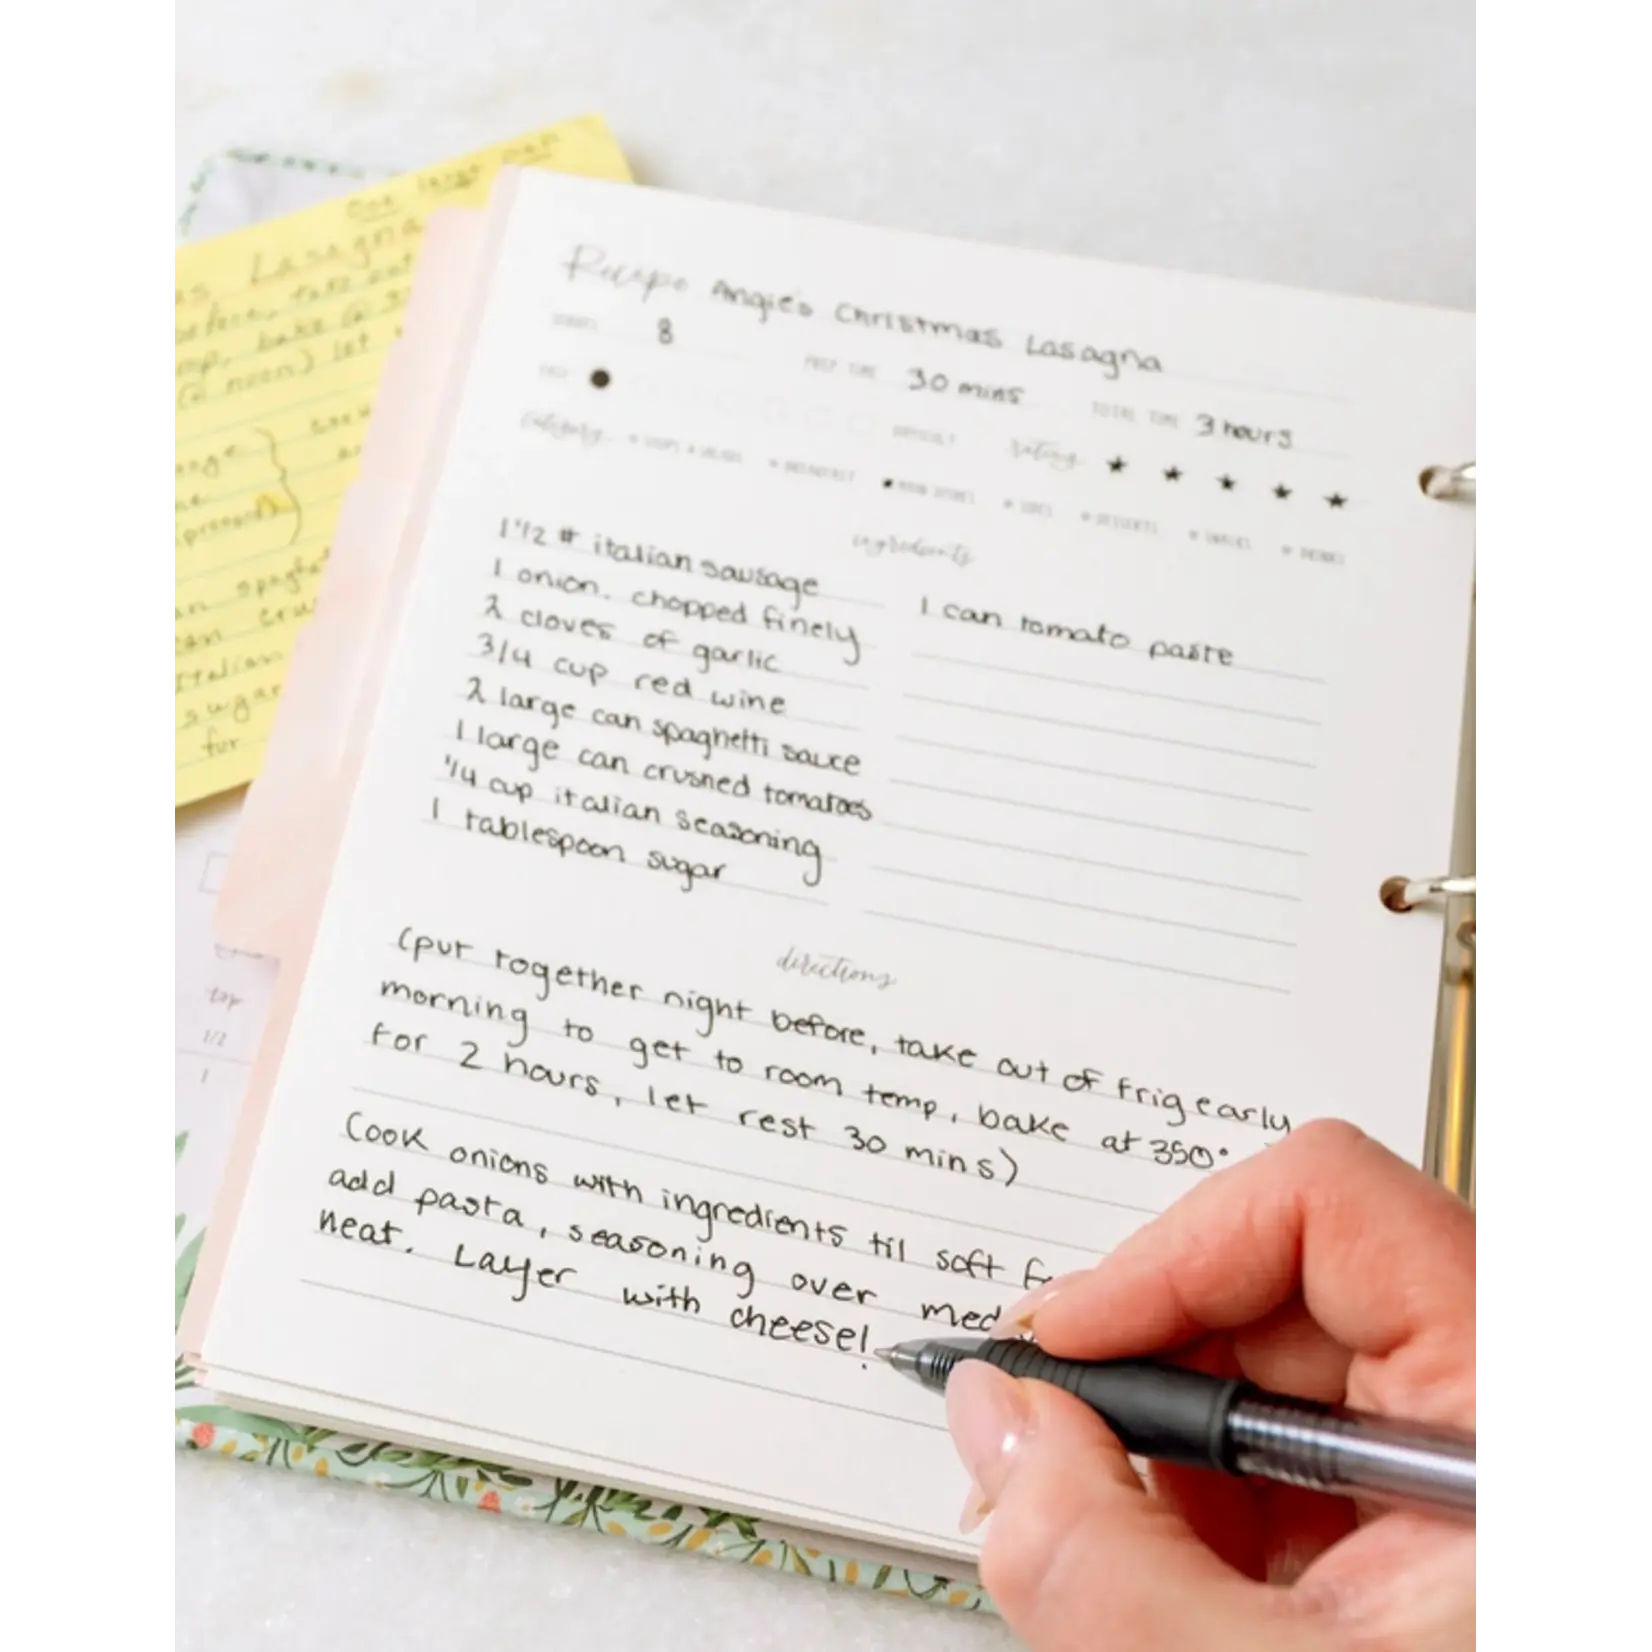 One large pan
Lasagna
before, take out
bake @
@ noon) let
spaghe
can cru
Italian
sugar
for
top
1/2
1
Recipe Angie's Christmas Lasagna
SERVES 8 PREP TIME 30 mins TOTAL TIME 3 hours
EASY DIFFICULT rating ★ ★ ★ ★ ★
category SOUPS + SALADS BREAKFAST MAIN DISHES SIDES DESSERTS SNACKS DRINKS
ingredients
1 1/2 # italian sausage
1 onion. chopped finely
2 cloves of garlic
3/4 cup red wine
2 large can spaghetti sauce
1 large can crushed tomatoes
1/4 cup italian seasoning
1 tablespoon sugar
1 can tomato paste
directions
(put together night before, take out of frig early
morning to get to room temp, bake at 350°
for 2 hours, let rest 30 mins)
Cook onions with ingredients til soft
add pasta, seasoning over med
heat. Layer with cheese!